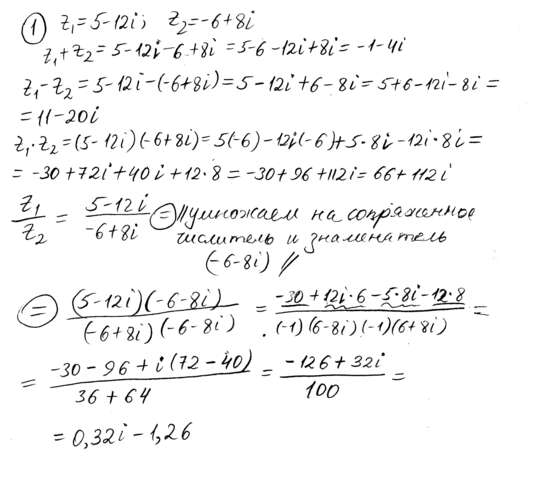 ① z₁=5-12i; z₂=-6+8i
z₁+z₂=5-12i-6+8i=5-6-12i+8i=-1-4i
z₁-z₂=5-12i-(-6+8i)=5-12i+6-8i=5+6-12i-8i=
=11-20i
z₁·z₂=(5-12i)(-6+8i)=5(-6)-12i(-6)+5·8i-12i·8i=
=-30+72i+40i+12·8=-30+96+112i=66+112i
z₁/z₂ = (5-12i)/(-6+8i) ⊜ //умножаем на сопряженное
числитель и знаменатель
(-6-8i)//
⊜ (5-12i)(-6-8i)/(-6+8i)(-6-8i) = -30+12i·6-5·8i-12·8/(-1)(6-8i)(-1)(6+8i) =
= -30-96+i(72-40)/36+64 = -126+32i/100 =
=0,32i-1,26